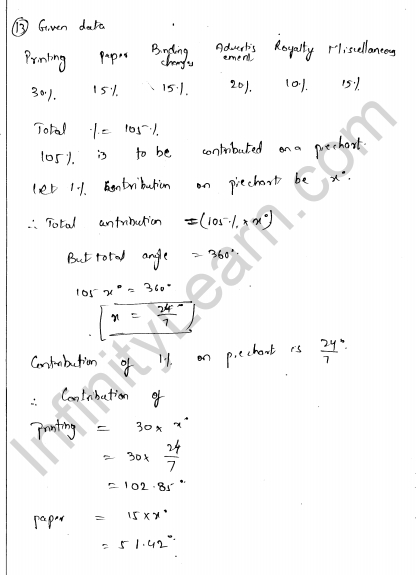 (13) Given data
Printing Paper Binding charges Advertisement Royalty Miscellaneous
30% 15% 15% 20% 10% 15%
Total % = 105%
105% is to be contributed on a piechart.
let 1% contribution on piechart be x°
∴ Total contribution = (105% × x°)
But total angle = 360°
105 x° = 360°
x = 24°/7
Contribution of 1% on piechart is 24°/7.
∴ Contribution of
Printing = 30 × x°
= 30 × 24/7
= 102.85°
paper = 15 × x°
= 51.42°
InfinityLearn.com